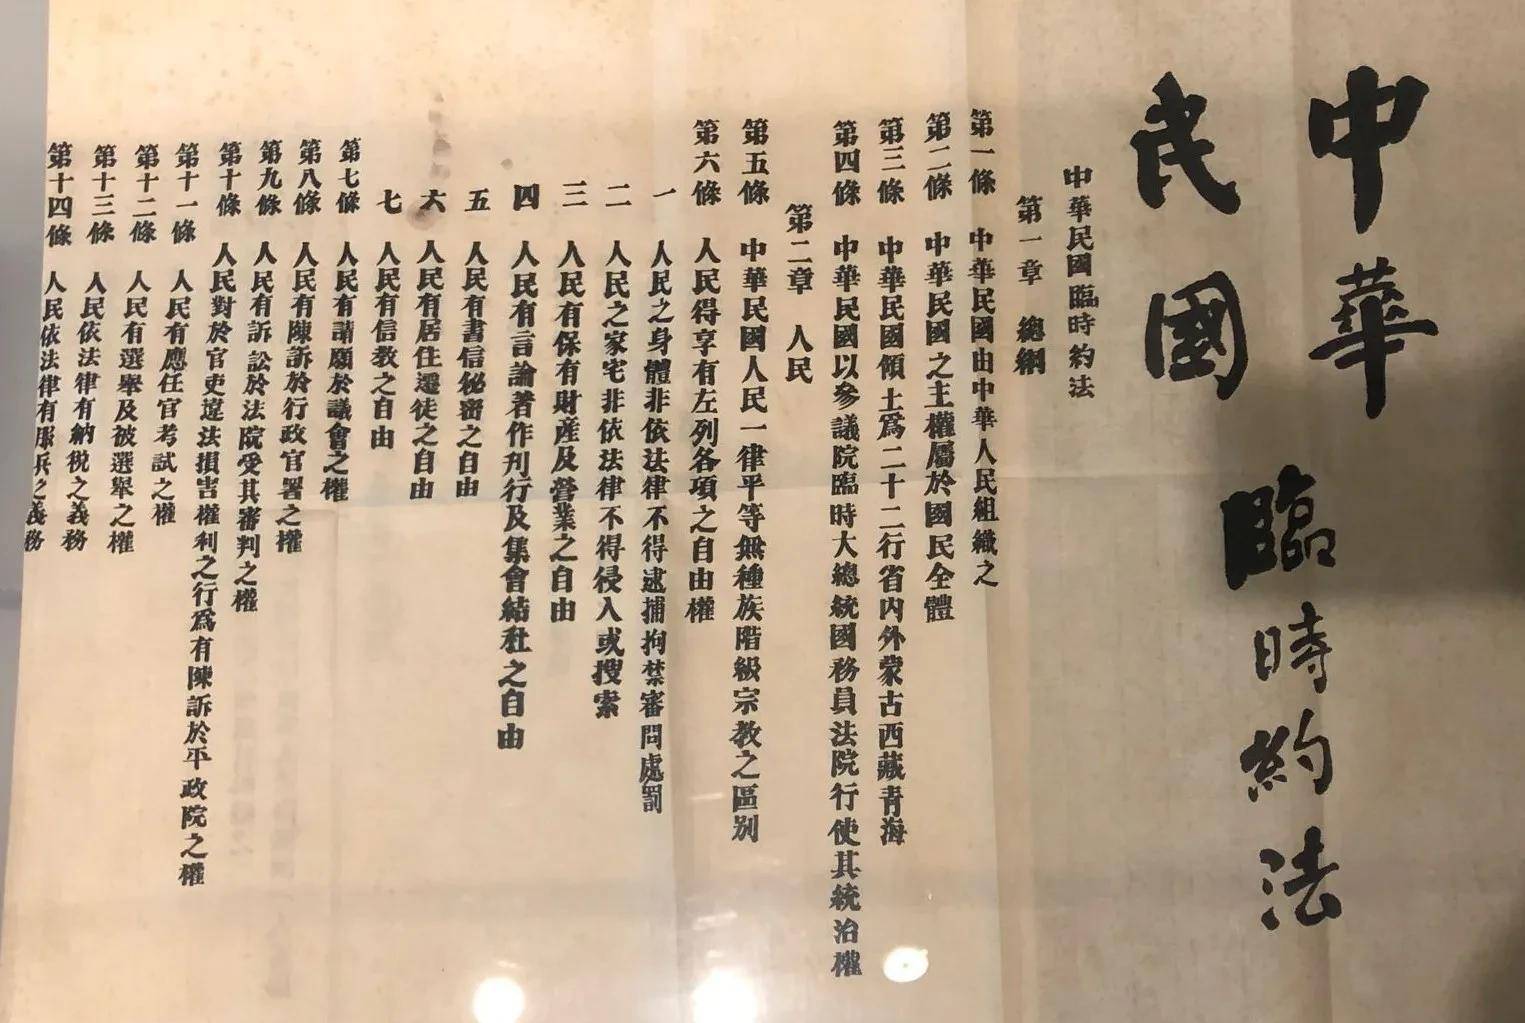 中華
民國
臨時約法
中華民國臨時約法
第一章　總綱
第一條　中華民國由中華人民組織之
第二條　中華民國之主權屬於國民全體
第三條　中華民國領土爲二十二行省內外蒙古西藏青海
第四條　中華民國以參議院臨時大總統國務員法院行使其統治權
第二章　人民
第五條　中華民國人民一律平等無種族階級宗教之區別
第六條　人民得享有左列各項之自由權
一　人民之身體非依法律不得逮捕拘禁審問處罰
二　人民之家宅非依法律不得侵入或搜索
三　人民有保有財產及營業之自由
四　人民有言論著作刋行及集會結社之自由
五　人民有書信秘密之自由
六　人民有居住遷徒之自由
七　人民有信教之自由
第七條　人民有請願於議會之權
第八條　人民有陳訴於行政官署之權
第九條　人民有訴訟於法院受其審判之權
第十條　人民對於官吏違法損害權利之行爲有陳訴於平政院之權
第十一條　人民有應任官考試之權
第十二條　人民有選舉及被選舉之權
第十三條　人民依法律有納稅之義務
第十四條　人民依法律有服兵之義務